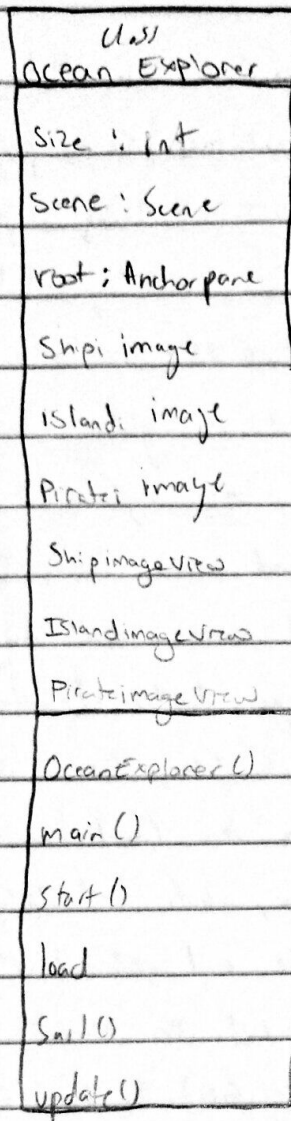 Class
Ocean Explorer
Size : int
Scene : Scene
root : Anchorpane
Ship: image
Island: image
Pirate: image
ShipimageView
IslandimageView
PirateimageView
OceanExplorer()
main()
start()
load
Sail()
update()